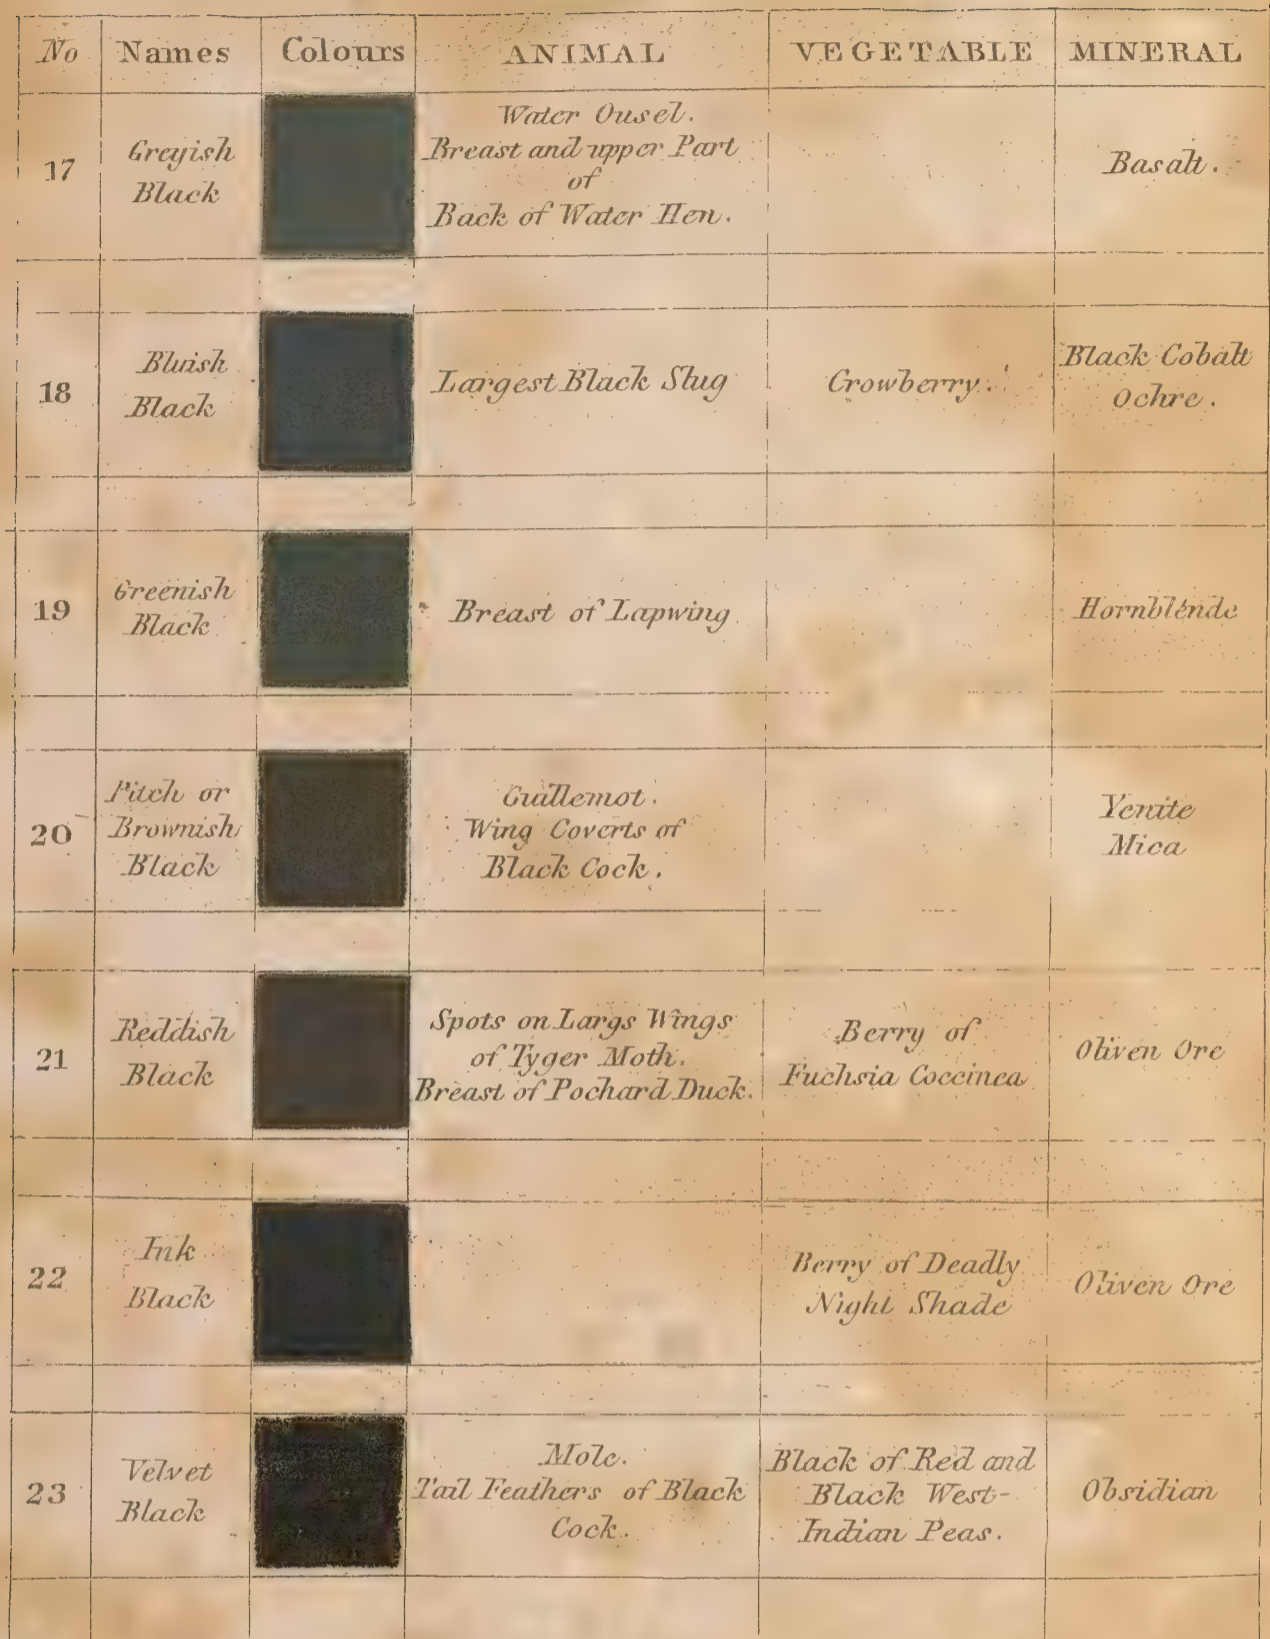 No Names Colours ANIMAL VEGETABLE MINERAL
17
Greyish
Black
Water Ousel.
Breast and upper Part
of
Back of Water Hen.
Basalt.
18
Bluish
Black
Largest Black Slug
Crowberry.
Black Cobalt
Ochre.
19
Greenish
Black
Breast of Lapwing
Hornblende
20
Pitch or
Brownish
Black
Guillemot.
Wing Coverts of
Black Cock.
Yenite
Mica
21
Reddish
Black
Spots on Largs Wings
of Tyger Moth.
Breast of Pochard Duck.
Berry of
Fuchsia Coccinea
Oliven Ore
22
Ink
Black
Berry of Deadly
Night Shade
Oliven Ore
23
Velvet
Black
Mole.
Tail Feathers of Black
Cock.
Black of Red and
Black West-
Indian Peas.
Obsidian